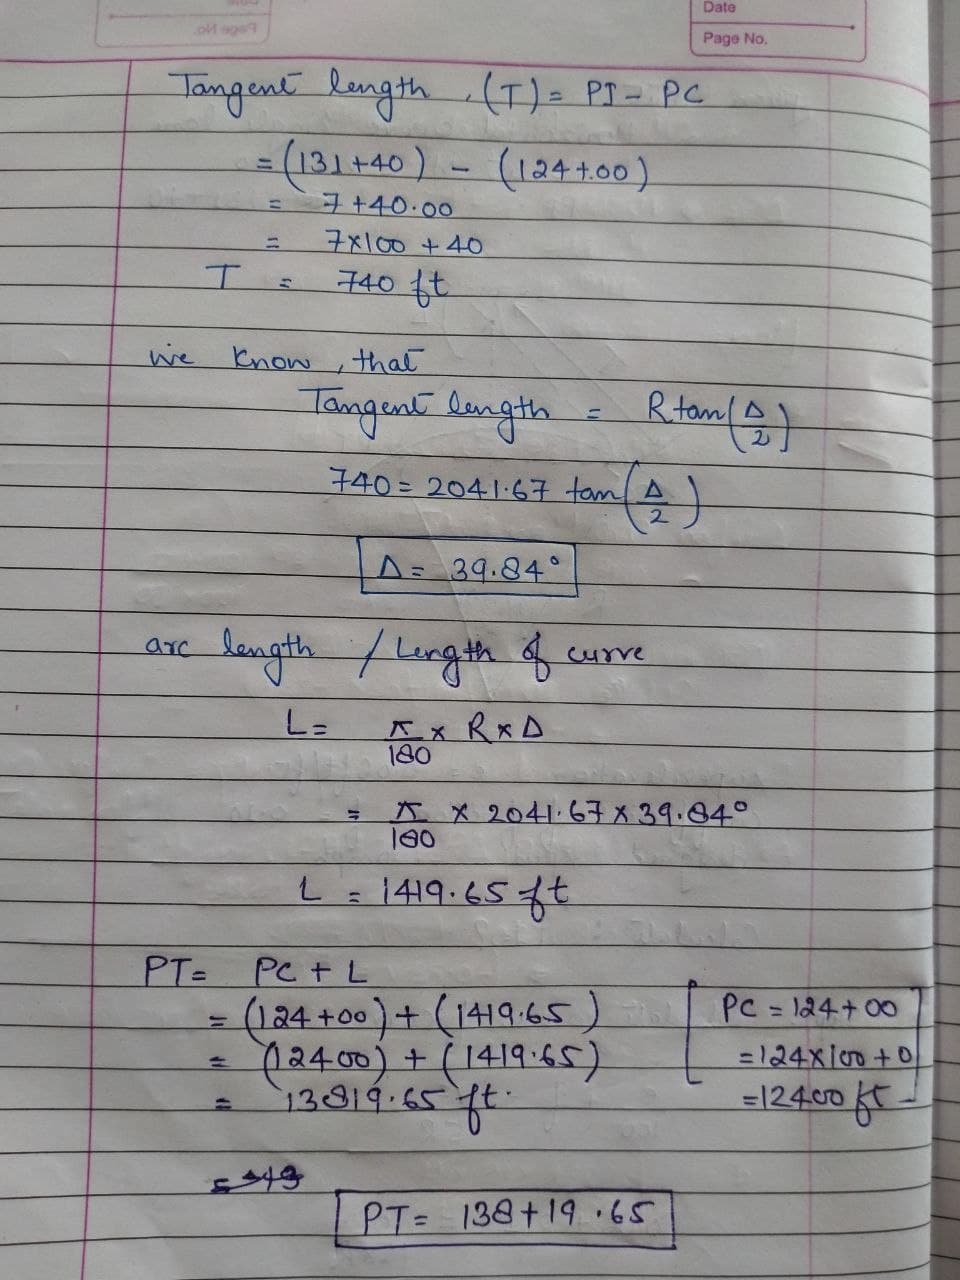 Date
Page No.
Page No.
Tangent length, (T) = PI - PC
= (131+40) - (124+.00)
= 7+40.00
= 7×100 + 40
T = 740 ft
we know, that
Tangent length = R tan(Δ/2)
740 = 2041.67 tan(Δ/2)
Δ = 39.84°
arc length / Length of curve
L = π/180 × R × Δ
= π/180 × 2041.67 × 39.84°
L = 1419.65 ft
PT = PC + L
= (124+00) + (1419.65)
= (12400) + (1419.65)
= 13819.65 ft.
PC = 124+00
= 124×100+0
= 12400 ft
PT = 138+19.65